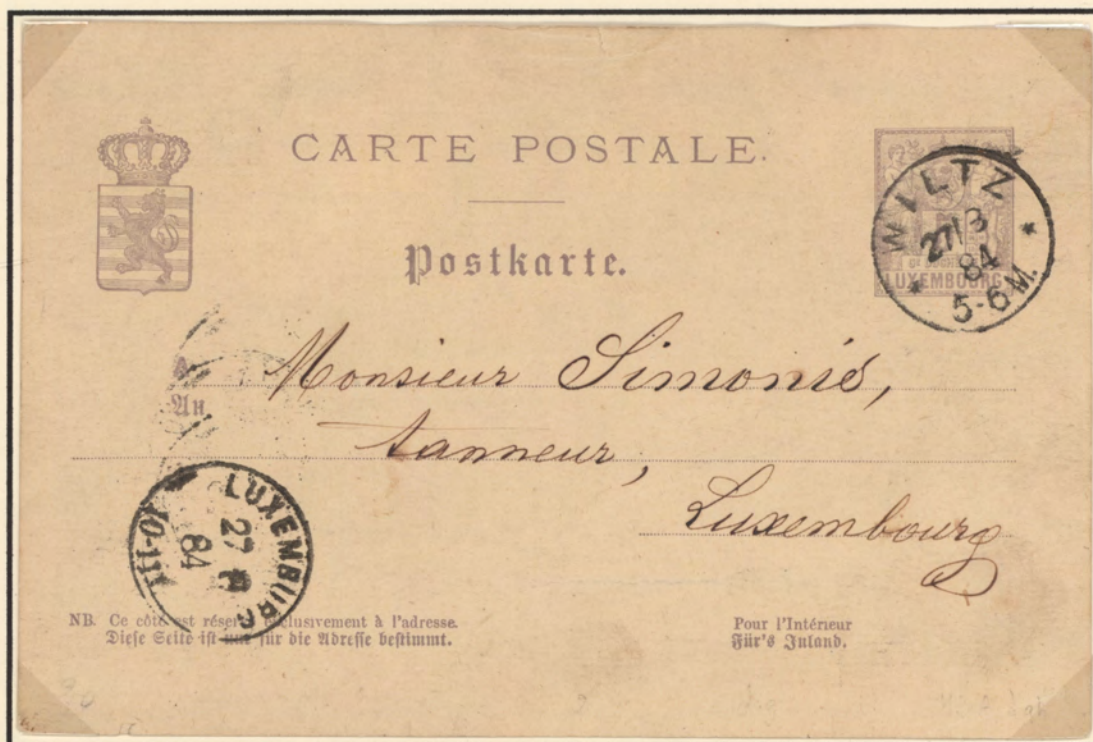 CARTE POSTALE.
Postkarte.
WILTZ
27/3
84
5-6 M.
LUXEMBOURG
A
An
Monsieur Simonis,
tanneur,
Luxembourg
LUXEMBURG
27
84
10-11
NB. Ce côté est réservé exclusivement à l'adresse.
Diese Seite ist nur für die Adresse bestimmt.
Pour l'Intérieur
Für's Inland.